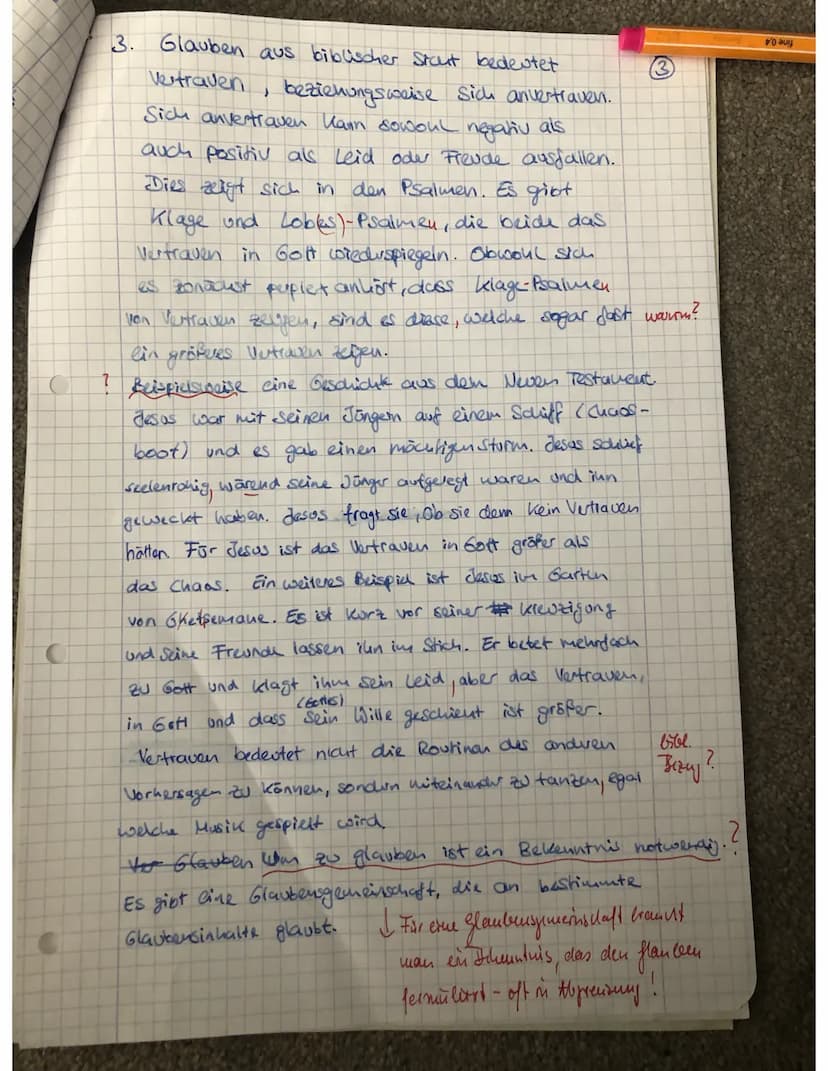 fine 0,4
3. Glauben aus biblischer Sicht bedeutet
③
Vertrauen, beziehungsweise sich anvertrauen.
Sich anvertrauen kann sowohl negativ als
auch positiv als Leid oder Freude ausfallen.
Dies zeigt sich in den Psalmen. Es gibt
Klage und Lob(es)-Psalmen, die beide das
Vertrauen in Gott wiederspiegeln. Obwohl sich
es zunächst anhört, dass Klage-Psalmen
von Vertrauen zeigen, sind es diese, welche sogar fast warum?
ein größeres Vertrauen zeigen.
? Beispielsweise eine Geschichte aus dem Neuen Testament.
Jesus war mit seinen Jüngern auf einem Schiff (Chaos-
boot) und es gab einen mächtigen Sturm. Jesus schlief
seelenruhig, wärend seine Jünger aufgelegt waren und ihn
geweckt haben. Jesus fragt sie, ob sie denn kein Vertrauen
hätten. Für Jesus ist das Vertrauen in Gott größer als
das Chaos. Ein weiteres Beispiel ist Jesus im Garten
von Ghetsemane. Es ist kurz vor seiner Kreuzigung
und seine Freunde lassen ihn im Stich. Er betet mehrfach
zu Gott und klagt ihm sein Leid, aber das Vertrauen,
(Gottes)
in Gott und dass sein Wille geschieht ist größer.
Vertrauen bedeutet nicht die Routinen des anderen bibl.
vorhersagen zu können, sondern miteinander zu tanzen, egal Bezug?
welche Musik gespielt wird.
Glauben Um zu glauben ist ein Bekenntnis notwendig. ?
Es gibt eine Glaubensgemeinschaft, die an bestimmte
Glaubensinhalte glaubt. ↓ Für eine Glaubensgemeinschaft braucht
man ein Bekenntnis, das den Glauben
formuliert - oft in Abgrenzung!